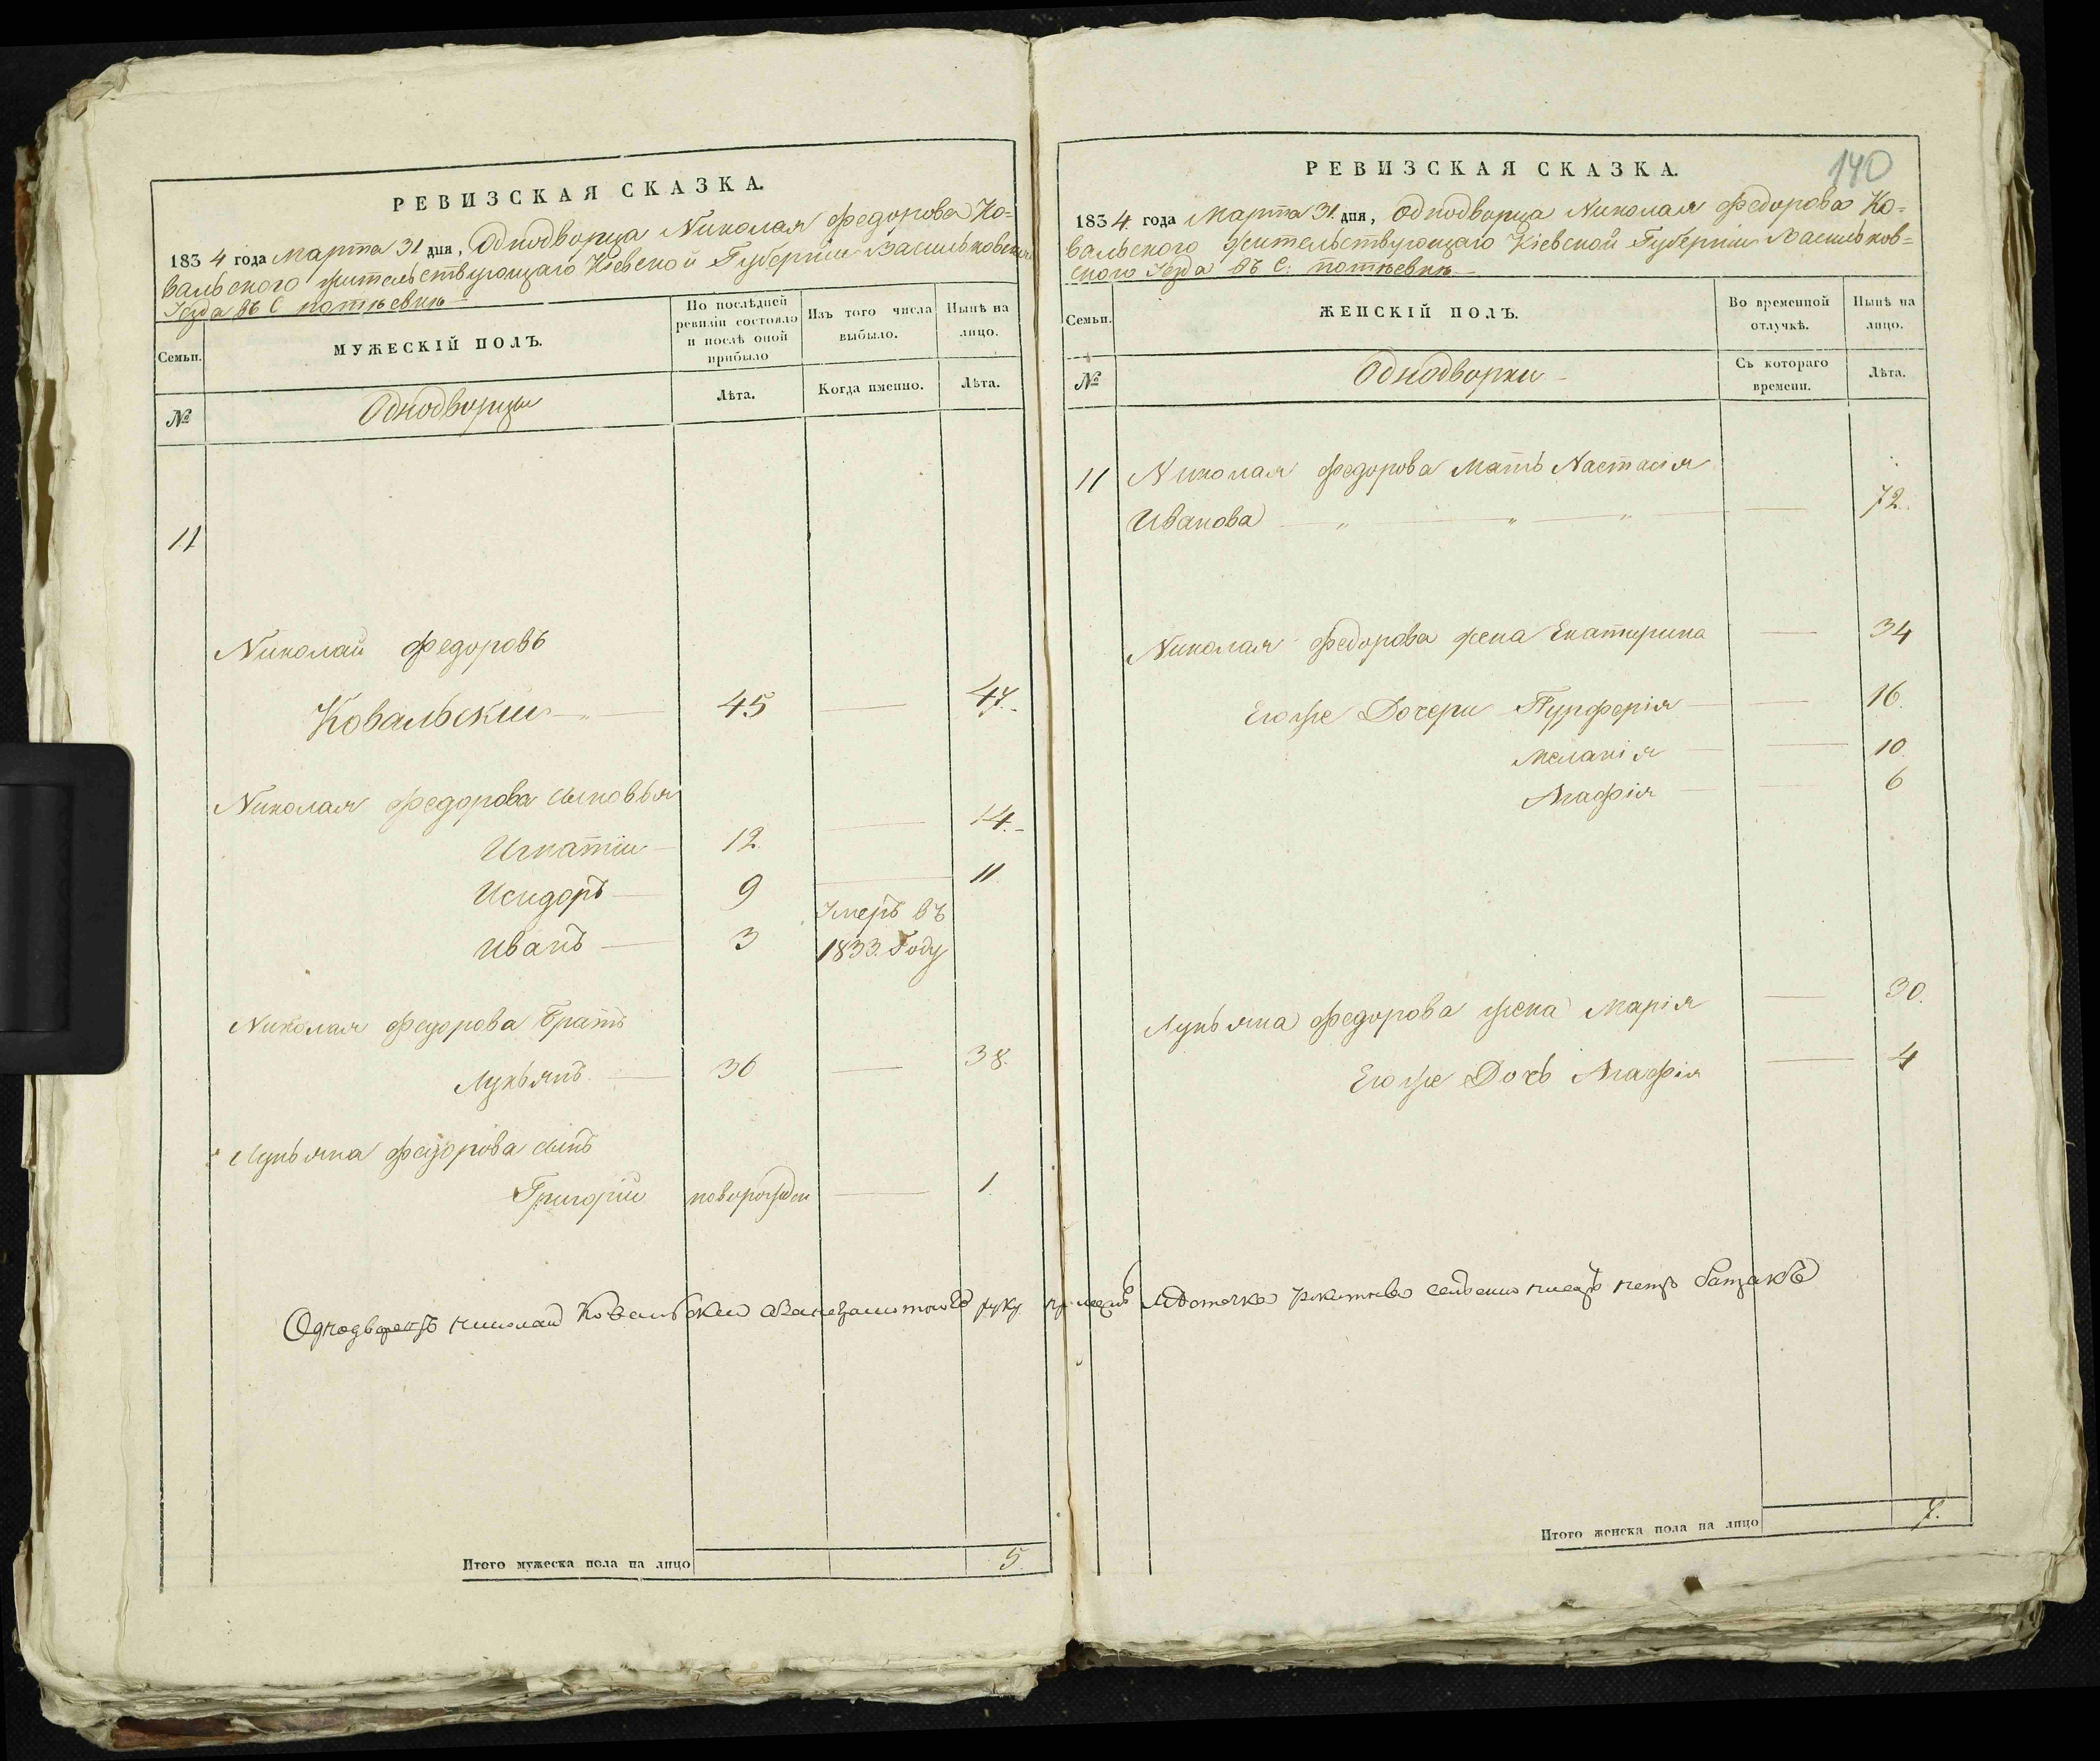 РЕВИЗСКАЯ СКАЗКА.
1834 года марта 31 дня, Однодворца Николая Федорова Ко-
вальского жительствующаго Кіевской Губерніи Васильковскаго
Уезда въ С потѣевкѣ
Семьи.
МУЖЕСКІЙ ПОЛЪ.
По послѣдней ревизіи состояло и послѣ оной прибыло
Изъ того числа выбыло.
Нынѣ на лицо.
№
Однодворцы
Лѣта.
Когда именно.
Лѣта.
11
Николай Федоровъ
Ковальскій 45 47.
Николая Федорова сыновья
Игнатій 12. 14.
Исидоръ 9 11
Иванъ 3 Умеръ въ 1833. Году
Николая Федорова Братъ
Лукьянъ 36 38.
Лукьяна Федорова сынъ
Григорій новорожден 1.
Итого мужеска пола на лицо 5
140
РЕВИЗСКАЯ СКАЗКА.
1834. года Марта 31. дня, Однодворца Николая Федорова Ко-
вальского жительствующаго Кіевской Губерніи Васильков-
ского Уезда въ С. потѣевкѣ
Семьи.
ЖЕНСКІЙ ПОЛЪ.
Во временной отлучкѣ.
Нынѣ на лицо.
№
Однодворки
Съ котораго времени.
Лѣта.
11 Николая Федорова Мать Настасія
Иванова 72.
Николая Федорова жена Екатерина 34
Егожѣ Дочери Пурферія 16.
Меланія 10.
Агафія 6
Лукьяна Федорова жена Марія 30.
Егожѣ Дочь Агафія 4
Однодворецъ николай Ковальскій руку
Итого женска пола на лицо 7.